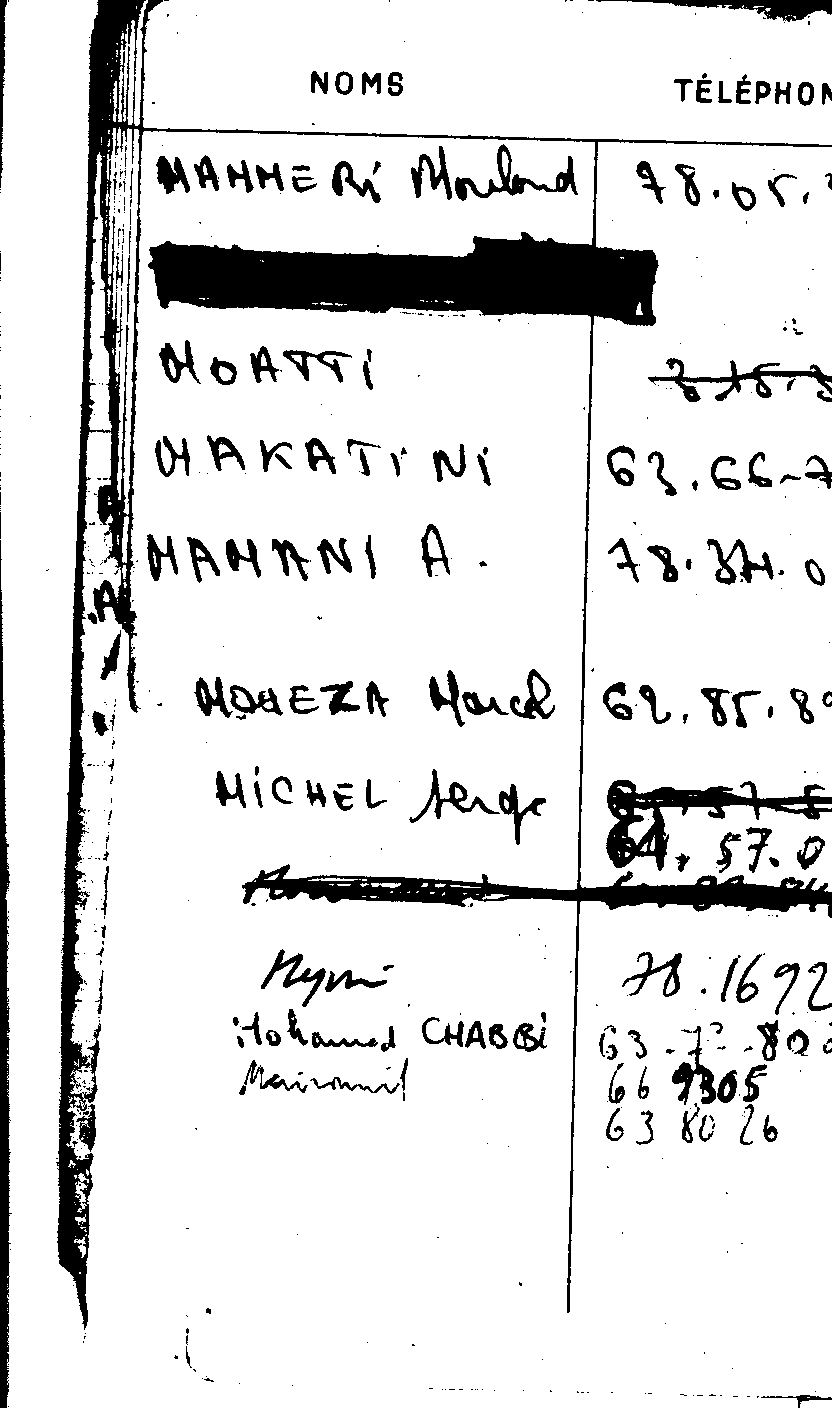 NOMS TÉLÉPHON
MAMMERI Mouloud 78.05.
MOATTI
MAKATINI 63.66-7
MAMANI A. 78.37.0
MOHEZA Marcel 62.85.89
MICHEL Serge
64. 57.0
78.1692
Mohamed CHABBI 63
66 9305
63 80 26